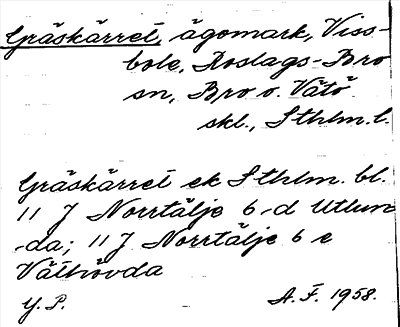 Gräskärret, ägomark, Viss-
bole, Roslags-Bro
sn, Bro o. Vätö
skl., Sthlm.l.
Gräskärret ek Sthlm. bl.
11 J Norrtälje 6 d Utlun
-da; 11 J Norrtälje 6 e
Väthövda
Y. P.
A. F. 1958.